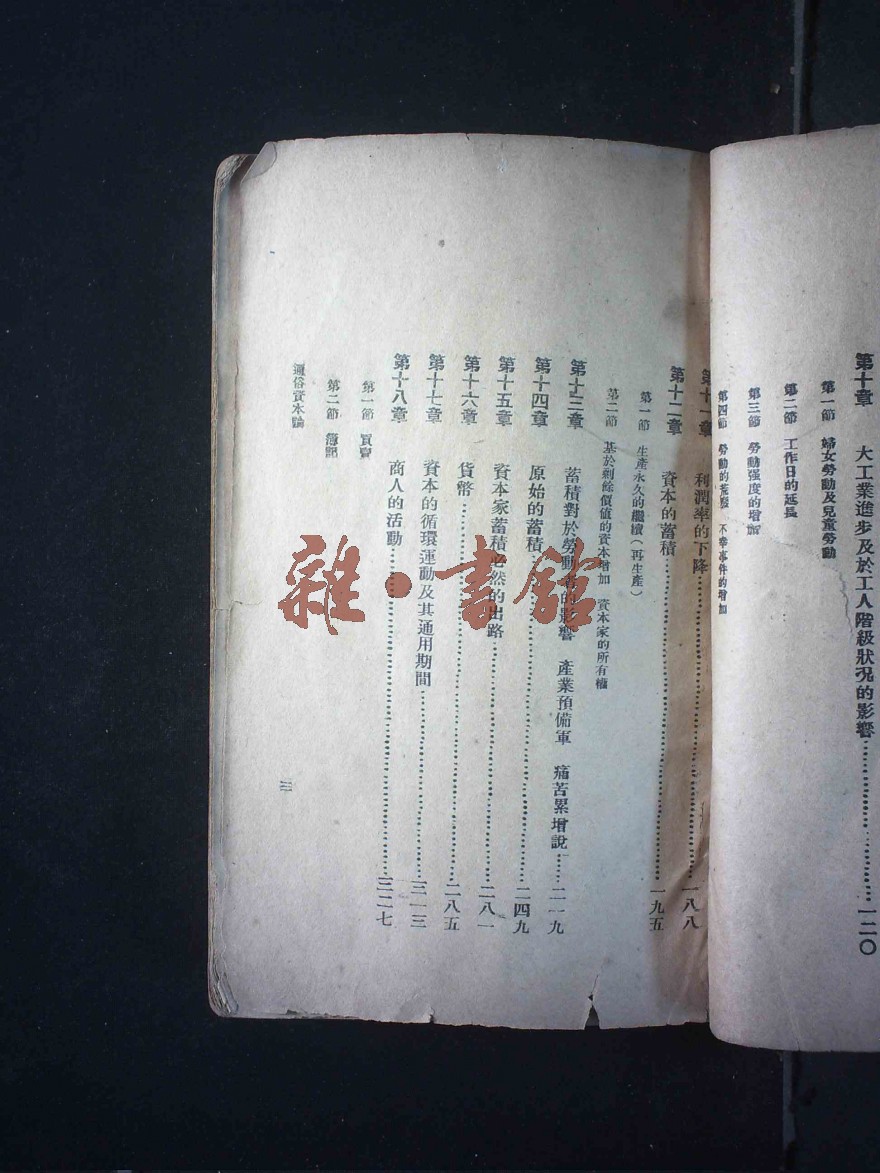 第十章　大工業進步及於工人階級狀況的影響……一二〇
第一節　婦女勞動及兒童勞動
第二節　工作日的延長
第三節　勞動强度的增加
第四節　勞動的荒廢　不幸事件的增加
第十一章　利潤率的下降……一八八
第十二章　資本的蓄積……一九五
第一節　生產永久的繼續（再生產）
第二節　基於剩餘價值的資本增加　資本家的所有權
第十三章　蓄積對於勞動者的影響　產業預備軍　痛苦累增說……二一九
第十四章　原始的蓄積……二四九
第十五章　資本家蓄積必然的出路……二八一
第十六章　貨幣……二八五
第十七章　資本的循環運動及其通用期間……三一三
第十八章　商人的活動……三二七
第一節　買賣
第二節　簿記
通俗資本論
三
雜·書館